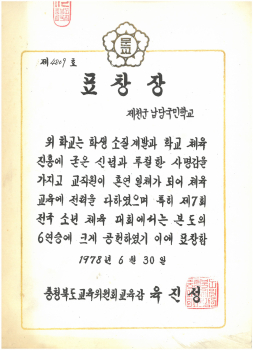 제4809호
표창장
제천군 남당국민학교
위 학교는 학생 소질 계발과 학교 체육
진흥에 굳은 신념과 투철한 사명감을
가지고 교직원이 혼연 일체가 되어 체육
교육에 전력을 다하였으며 특히 제7회
전국 소년 체육 대회에서는 본도의
6연승에 크게 공헌하였기 이에 표창함
1978년 6월 30일
충청북도교육위원회교육감 육진성